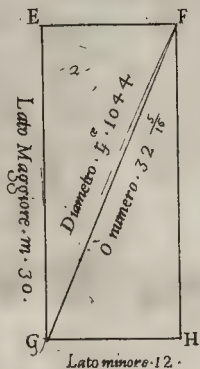 E F
·2·
Lato Maggiore·m·30·
Diametro· ·1044
O numero·32 5/16
G H
Lato minore·12·